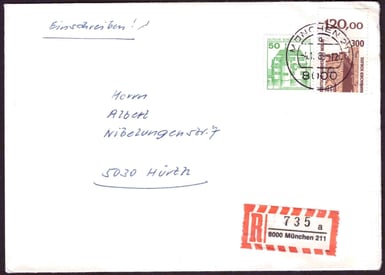 Einschreiben!!
50
120,00
300
MÜNCHEN
8000
Herrn
Albert
Nibelungenstr. 7
5030 Hürth
R
735 a
8000 München 211